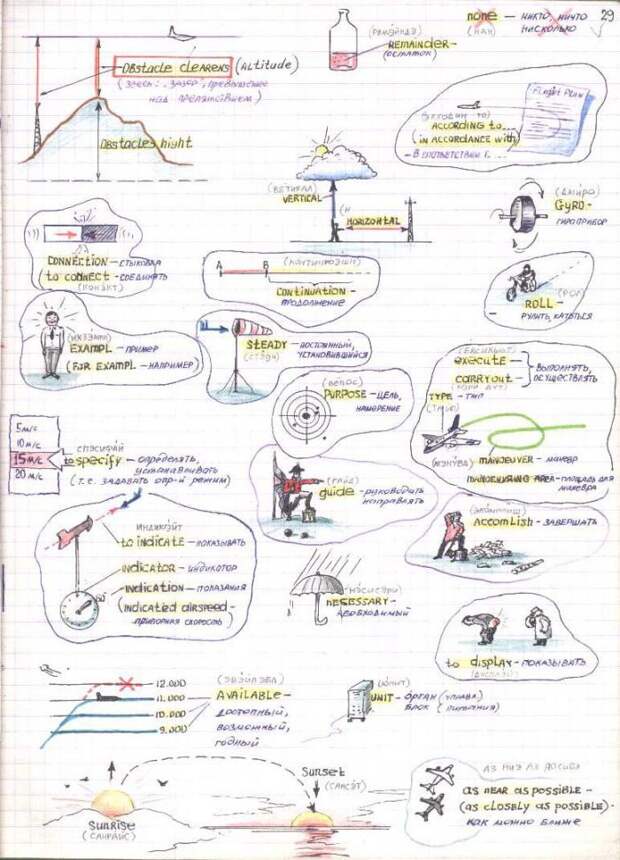 29
none — никто, ничто
(НАН) нисколько
(РИМЭЙНДЭ)
REMAINDER-
остаток
Obstacle clearens (Altitude)
(здесь: "зазор", превышение
над препятствием)
Obstacles hight
Flight Plan
ACCORDING to...
(in accordance with)
- В соответствии с...
VERTICAL
HORIZONTAL
(ДЖАЙРО)
GyRO-
гироприбор
CONNECTION - стыковка
(to connect - соединять
A B
CONTINUATION-
продолжение
(РОЛ)
ROLL-
рулить, кататься
EXAMPL - пример
(FOR EXAMPL - например)
STEADY - постоянный,
(СТЭДИ) установившийся
execute
CARRYout
выполнять,
осуществлять
(ПЁПОС)
PURPOSE - цель,
намерение
TYPE - тип
(ТАЙП)
(МЭНУВА) MANOEUVER - маневр
MANOEUVRING AREA - площадь для
маневра
5 м/с
10 м/с
15 м/с
20 м/с
СПЭСИФАЙ
to specify - определять,
устанавливать
(т.е. задавать опр-й режим)
(ГАЙД)
guide - руководить
направлять
ACCOMLISH - ЗАВЕРШАТЬ
ИНДИКЭЙТ
to INDICATE - показывать
INDICATOR - индикатор
INDICATION - показания
(INDICATED AIRSPEED-
приборная скорость)
(НЭСИСЭРИ)
NECESSARY -
необходимый
to DISPLAY - показывать
(ДИСПЛЭЙ)
12.000
11.000
10.000
9.000
(ЭВЭЙЛЭБЛ)
AVAILABLE -
доступный,
возможный,
годный
(ЮНИТ)
UNIT - орган (управл)
блок (питания)
Sunrise
(САНРАЙС)
Sunset
(САНСЭТ)
as near as possible -
(as closely as possible) -
как можно ближе